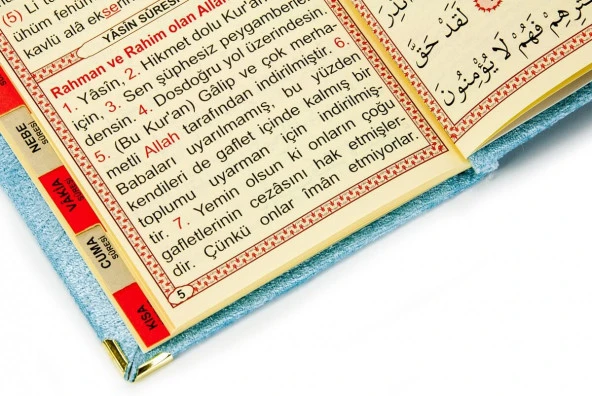 (5) Li
ühüm fehüm
kavlü alâ eksen
YÂSİN SÛRESİ
Rahman ve Rahim olan Allah
1. Yâsîn, 2. Hikmet dolu Kur'an
için, 3. Sen şüphesiz peygamberler
densin. 4. Dosdoğru yol üzerindesin.
5. (Bu Kur'an) Gâlip ve çok merha-
metli Allah tarafından indirilmiştir. 6.
Babaları uyarılmamış, bu yüzden
kendileri de gaflet içinde kalmış bir
toplumu uyarman için indirilmiş-
tir. 7. Yemin olsun ki onların çoğu
gafletlerinin cezâsını hak etmişler-
dir. Çünkü onlar îmân etmiyorlar.
5
NEBE SÛRESİ
VAKIA SÛRESİ
CUMA SÛRESİ
KISA
لَقَدْ حَقَّ
فَهُمْ لَا يُؤْمِنُونَ